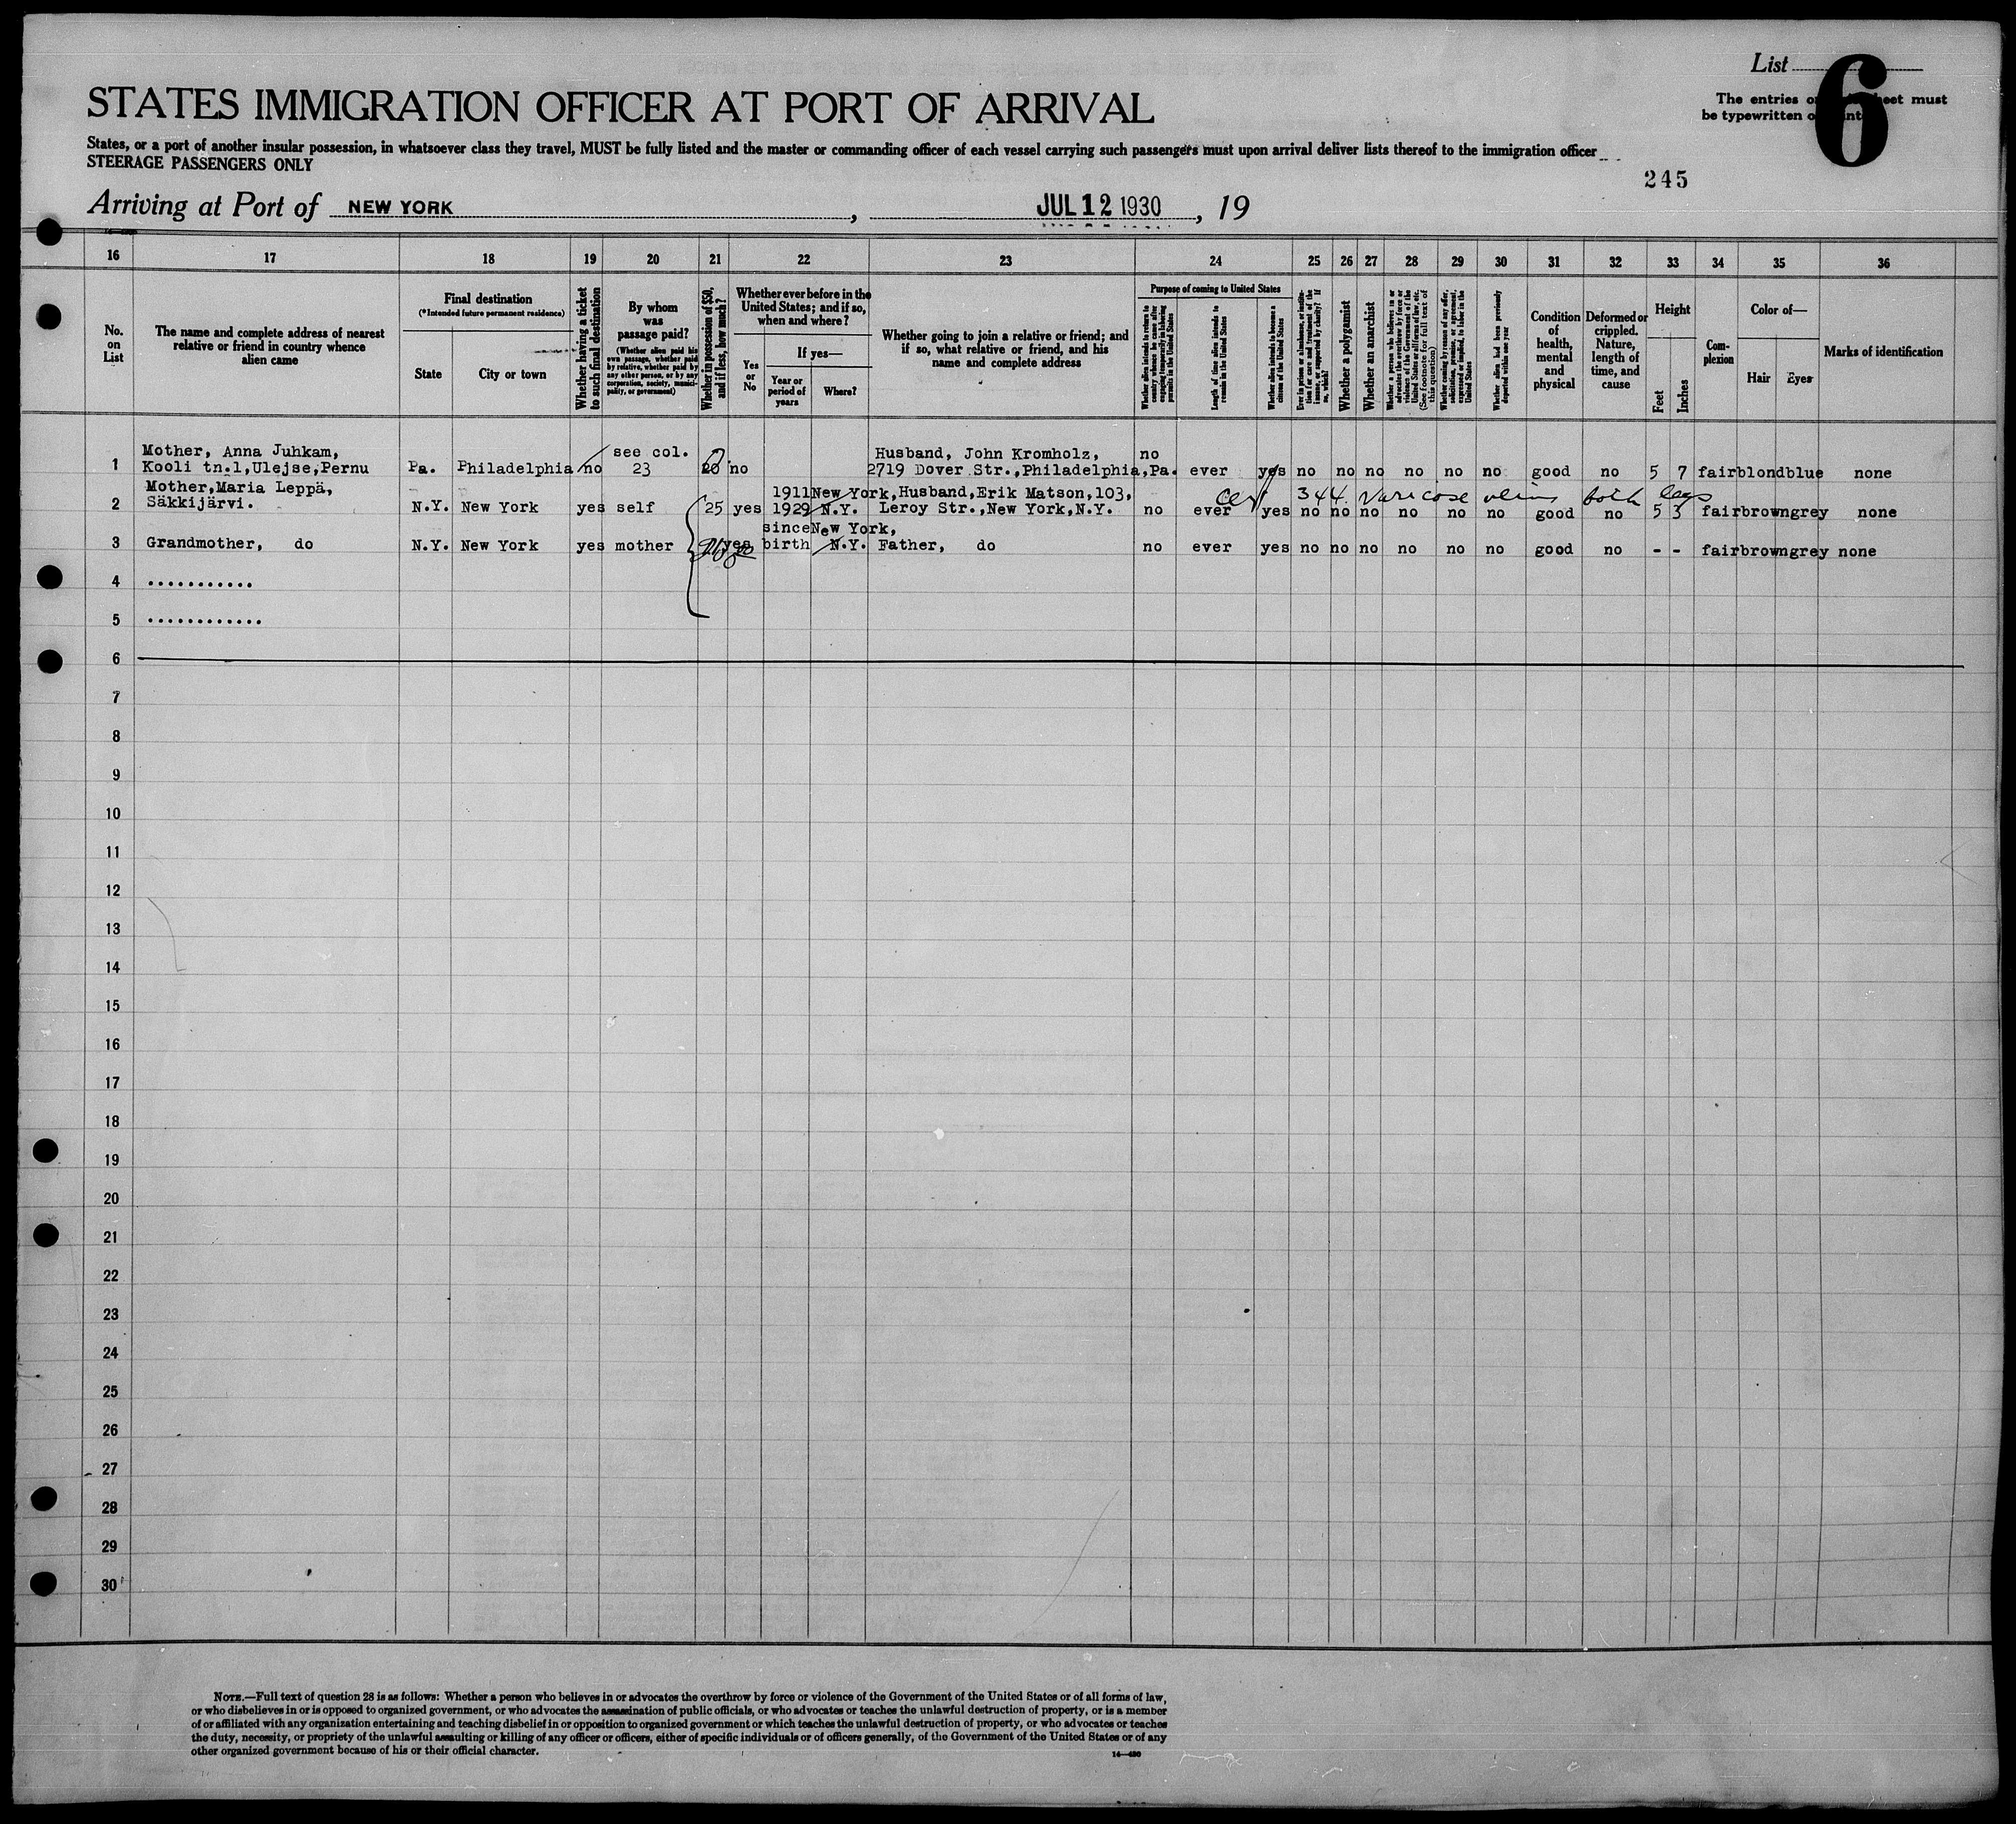 List 6
The entries on sheet must
be typewritten or
STATES IMMIGRATION OFFICER AT PORT OF ARRIVAL
States, or a port of another insular possession, in whatsoever class they travel, MUST be fully listed and the master or commanding officer of each vessel carrying such passengers must upon arrival deliver lists thereof to the immigration officer
STEERAGE PASSENGERS ONLY
245
Arriving at Port of NEW YORK, JUL 12 1930, 19
16 17 18 19 20 21 22 23 24 25 26 27 28 29 30 31 32 33 34 35 36
No. on List
The name and complete address of nearest relative or friend in country whence alien came
Final destination
(*Intended future permanent residence)
State
City or town
Whether having a ticket to such final destination
By whom was passage paid?
(Whether alien paid his own passage, whether paid by relative, whether paid by any other person, or by any corporation, society, municipality, or government)
Whether in possession of $50, and if less, how much?
Whether ever before in the United States; and if so, when and where?
Yes or No
If yes—
Year or period of years
Where?
Whether going to join a relative or friend; and if so, what relative or friend, and his name and complete address
Purpose of coming to United States
Whether alien intends to return to country whence he came after engaging temporarily in laboring pursuits in the United States
Length of time alien intends to remain in the United States
Whether alien intends to become a citizen of the United States
Ever in prison or almshouse, or institution for care and treatment of the insane, or supported by charity? If so, which?
Whether a polygamist
Whether an anarchist
Whether a person who believes in or advocates the overthrow by force or violence of the Government of the United States or all forms of law, etc. (See footnote for full text of this question)
Whether coming by reason of any offer, solicitation, promise, or agreement, expressed or implied, to labor in the United States
Whether alien had been previously deported within one year
Condition of health, mental and physical
Deformed or crippled. Nature, length of time, and cause
Height
Feet
Inches
Complexion
Color of—
Hair
Eyes
Marks of identification
Mother, Anna Juhkam, see col. Husband, John Kromholz, no
1 Kooli tn.1,Ulejse,Pernu Pa. Philadelphia no 23 20 no 2719 Dover Str.,Philadelphia,Pa. ever yes no no no no no no good no 5 7 fair blond blue none
Mother,Maria Leppä, 1911 New York, Husband,Erik Matson,103, Cert 344 Varicose veins both legs
2 Säkkijärvi. N.Y. New York yes self 25 yes 1929 N.Y. Leroy Str.,New York,N.Y. no ever yes no no no no no no good no 5 3 fair brown grey none
since New York,
3 Grandmother, do N.Y. New York yes mother yes birth N.Y. Father, do no ever yes no no no no no no good no - - fair brown grey none
4 ...........
5 ............
6
7
8
9
10
11
12
13
14
15
16
17
18
19
20
21
22
23
24
25
26
27
28
29
30
NOTE.—Full text of question 28 is as follows: Whether a person who believes in or advocates the overthrow by force or violence of the Government of the United States or of all forms of law,
or who disbelieves in or is opposed to organized government, or who advocates the assassination of public officials, or who advocates or teaches the unlawful destruction of property, or is a member
of or affiliated with any organization entertaining and teaching disbelief in or opposition to organized government or which teaches the unlawful destruction of property, or who advocates or teaches
the duty, necessity, or propriety of the unlawful assaulting or killing of any officer or officers, either of specific individuals or of officers generally, of the Government of the United States or of any
other organized government because of his or their official character.
14—430